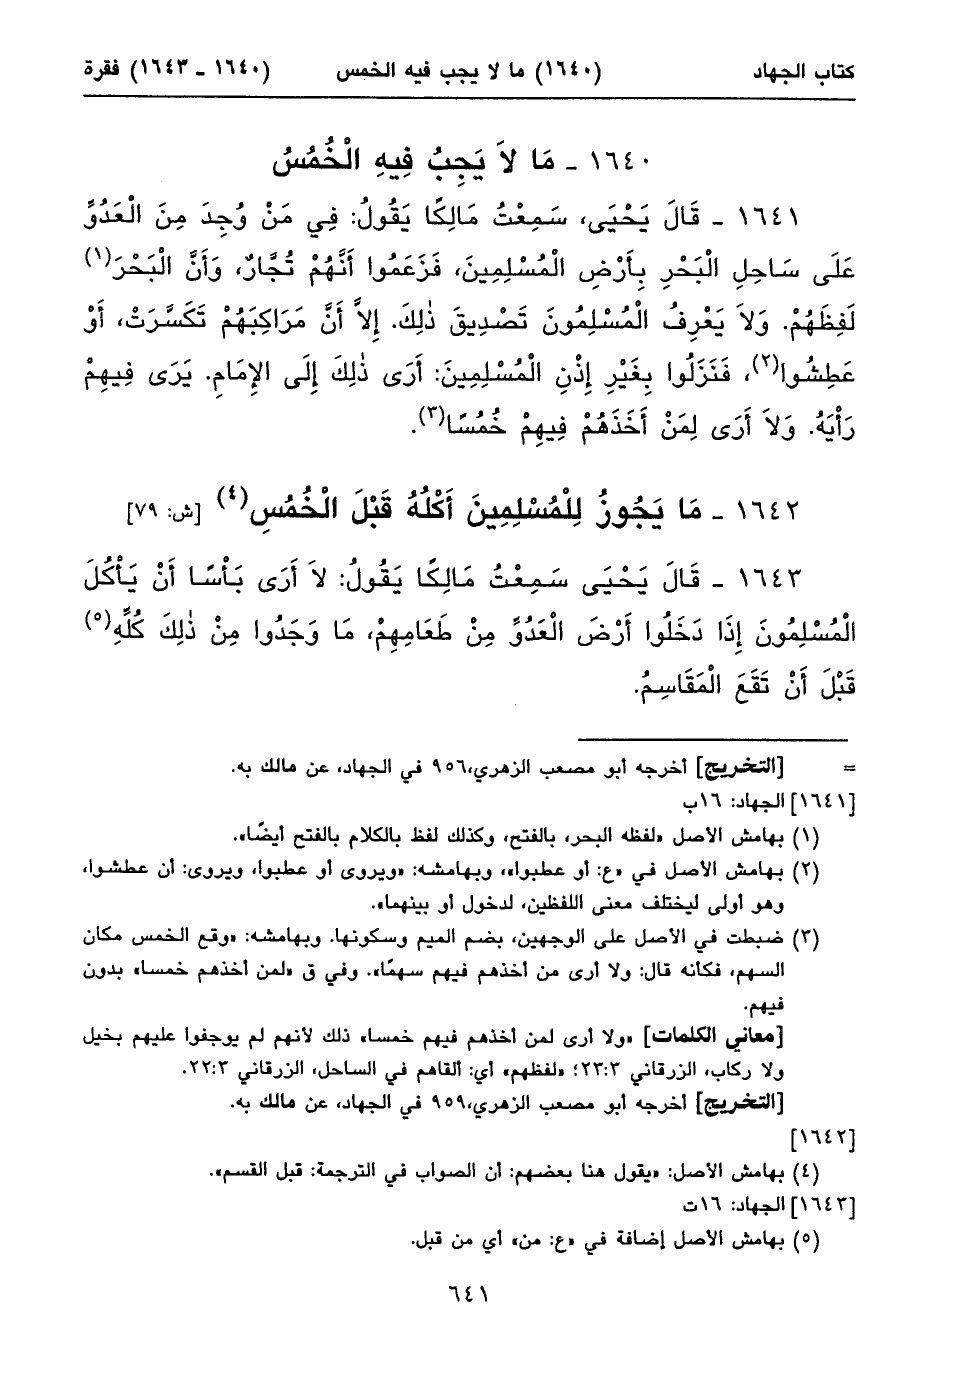 كتاب الجهاد (١٦٤٠) ما لا يجب فيه الخمس (١٦٤٠ - ١٦٤٣) فقرة
١٦٤٠ - مَا لاَ يَجِبُ فِيهِ الْخُمُسُ
١٦٤١ - قَالَ يَحْيَى، سَمِعْتُ مَالِكًا يَقُولُ: فِي مَنْ وُجِدَ مِنَ الْعَدُوِّ
عَلَى سَاحِلِ الْبَحْرِ بِأَرْضِ الْمُسْلِمِينَ، فَزَعَمُوا أَنَّهُمْ تُجَّارٌ، وَأَنَّ الْبَحْرَ(١)
لَفِظَهُمْ. وَلاَ يَعْرِفُ الْمُسْلِمُونَ تَصْدِيقَ ذٰلِكَ. إِلاَّ أَنَّ مَرَاكِبَهُمْ تَكَسَّرَتْ، أَوْ
عَطِشُوا(٢)، فَنَزَلُوا بِغَيْرِ إِذْنِ الْمُسْلِمِينَ: أَرَى ذٰلِكَ إِلَى الإِمَامِ. يَرَى فِيهِمْ
رَأْيَهُ. وَلاَ أَرَى لِمَنْ أَخَذَهُمْ فِيهِمْ خُمُسًا(٣).
١٦٤٢ - مَا يَجُوزُ لِلْمُسْلِمِينَ أَكْلُهُ قَبْلَ الْخُمُسِ(٤) [ش: ٧٩]
١٦٤٣ - قَالَ يَحْيَى سَمِعْتُ مَالِكًا يَقُولُ: لاَ أَرَى بَأْسًا أَنْ يَأْكُلَ
الْمُسْلِمُونَ إِذَا دَخَلُوا أَرْضَ الْعَدُوِّ مِنْ طَعَامِهِمْ، مَا وَجَدُوا مِنْ ذٰلِكَ كُلِّهِ(٥)
قَبْلَ أَنْ تَقَعَ الْمَقَاسِمُ.
= [التخريج] أخرجه أبو مصعب الزهري، ٩٥٦ في الجهاد، عن مالك به.
[١٦٤١] الجهاد: ١٦ب
(١) بهامش الأصل «لفظه البحر، بالفتح، وكذلك لفظ بالكلام بالفتح أيضًا».
(٢) بهامش الأصل في «ع: أو عطبوا»، وبهامشه: «ويروى أو عطبوا، ويروى: أن عطشوا،
وهو أولى ليختلف معنى اللفظين، لدخول أو بينهما».
(٣) ضبطت في الأصل على الوجهين، بضم الميم وسكونها. وبهامشه: «وقع الخمس مكان
السهم، فكأنه قال: ولا أرى من أخذهم فيهم سهمًا». وفي ق «لمن أخذهم خمسا» بدون
فيهم.
[معاني الكلمات] «ولا أرى لمن أخذهم فيهم خمسا» ذلك لأنهم لم يوجفوا عليهم بخيل
ولا ركاب، الزرقاني ٢٣:٣؛ «لفظهم» أي: ألقاهم في الساحل، الزرقاني ٢٢:٣.
[التخريج] أخرجه أبو مصعب الزهري، ٩٥٩ في الجهاد، عن مالك به.
[١٦٤٢]
(٤) بهامش الأصل: «يقول هنا بعضهم: أن الصواب في الترجمة: قبل القسم».
[١٦٤٣] الجهاد: ١٦ت
(٥) بهامش الأصل إضافة في «ع: من» أي من قبل.
٦٤١